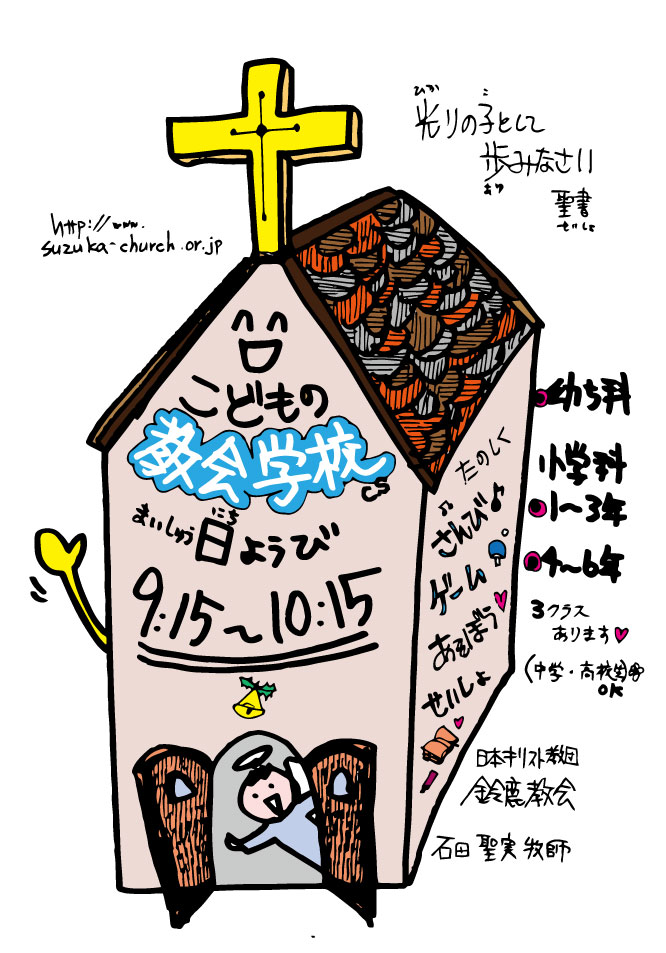 ひか こ
光りの子として
歩みなさい
ある
聖書
せいしょ
http://www.
suzuka-church.or.jp
こどもの
教会学校
CS
まいしゅう日ようび
にち
9:15～10:15
たのしく
さんび♪
ゲーム
あそぼう♥
せいしょ
幼ち科
小学科
1～3年
4～6年
3クラス
あります♥
(中学・高校生も
OK
日本キリスト教団
鈴鹿教会
石田 聖実 牧師